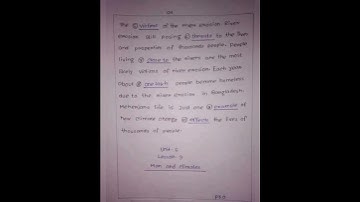 The ① victims of the river erosion. River
erosion is a ② threats to the lives
and properties of thousands people. People
living ③ close to the rivers are the most
likely victims of river erosion. Each year
about ④ one lakh people become homeless
due to the river erosion in Bangladesh.
life is just one ⑤ example of
how climate change ⑥ affects the lives of
thousands of people.
Unit 5
Lesson
Man and Climate